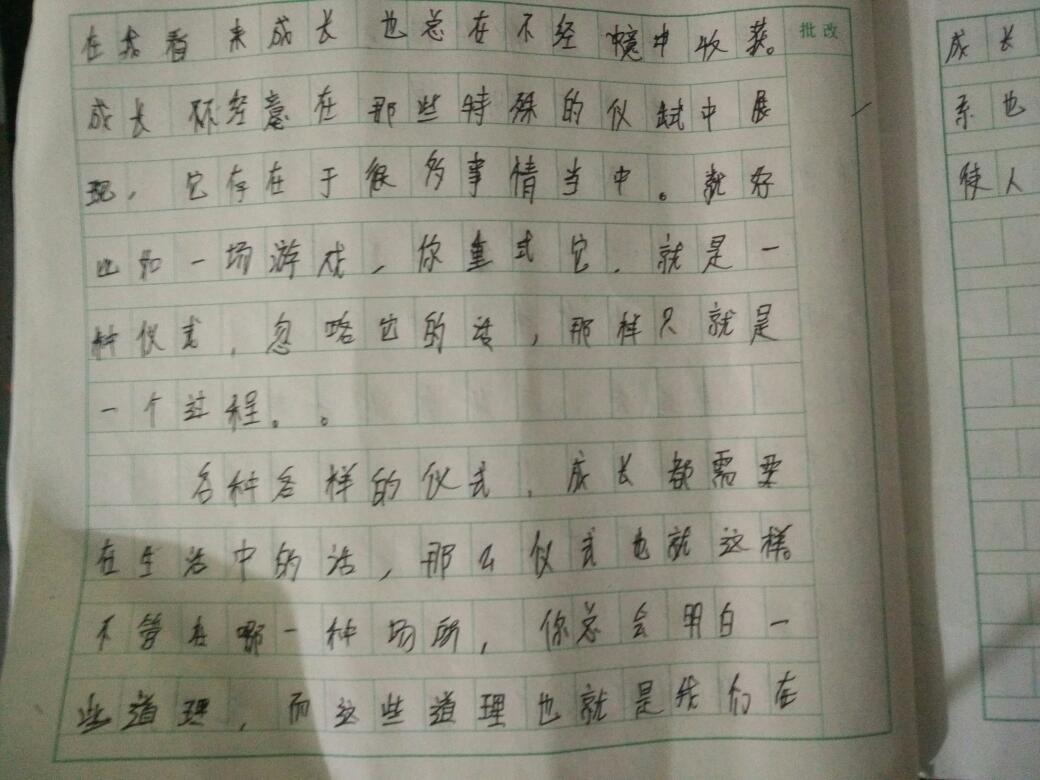 在我看来成长也总在不经意中收获。
成长不经意在那些特殊的仪试中展
现，它存在于很多事情当中。就好
比如一场游戏，你重式它，就是一
种仪式，忽略它的话，那样只就是
一个过程。。
各种各样的仪式，成长都需要
在生活中的话，那么仪式也就这样。
不管在哪一种场所，你总会明白一
些道理，而这些道理也就是我们在
批改
成长
系也
使人